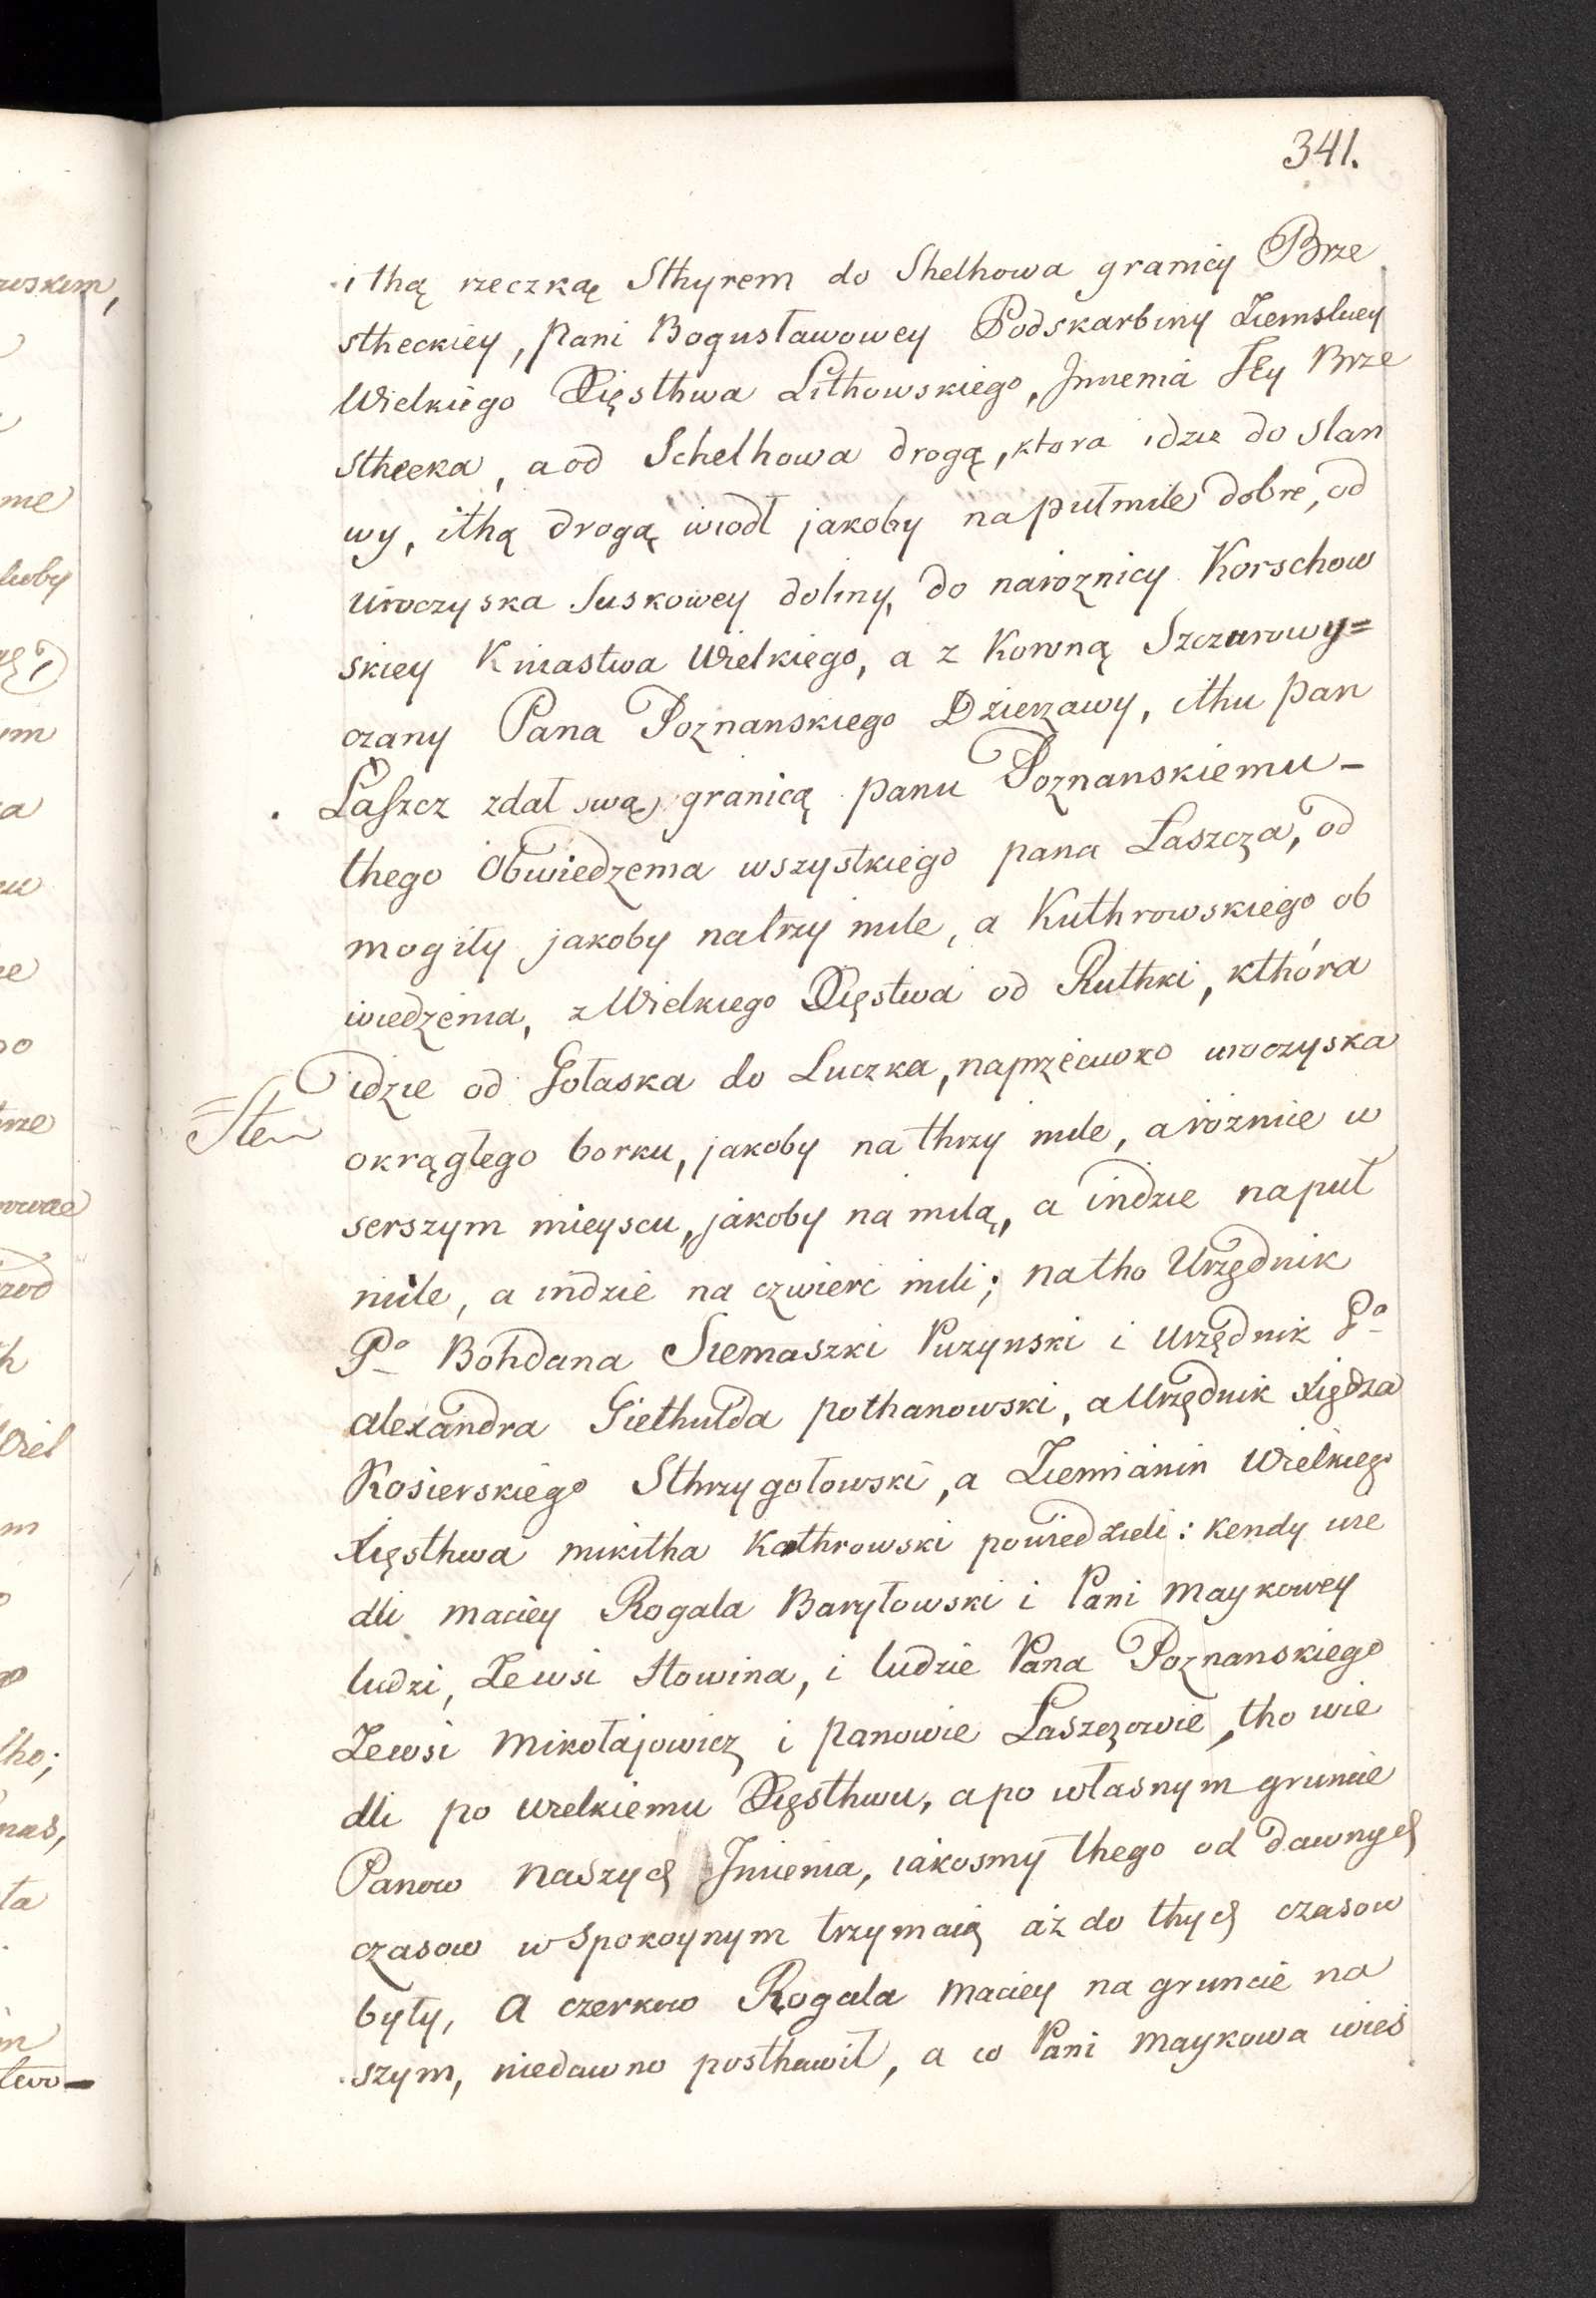 341.
i thą rzeczką Sthyrem do Shelhowa granicy Brze
stheckiey, pani Bogusławowey Podskarbiny Ziemskiey
Wielkiego Xięsthwa Lithowskiego, Jmienia Jey Brze
stheeka, a od Schelhowa drogą, ktora idzie do slan
wy, ithą drogą wiodł jakoby na pułmile dobre, od
uroczyska Suskowey doliny, do naroznicy Korschow
skiey Kniastwa Wielkiego, a z Koroną Szczurowy=
czany Pana Poznanskiego Dzierzawy, ithu pan
Laszcz zdał swą granicą panu Poznanskiemu -
thego Obwiedzenia wszystkiego pana Laszcza, od
mogiły jakoby natrzy mile, a Kuthrowskiego ob
wiedzenia, z Wielkiego Xięstwa od Ruthki, kthóra
idzie od Gołaska do Luczka, naprzeciwko uroczyska
okrągłego borku, jakoby na thrzy mile, a rożnie w
serszym mieyscu, jakoby na milą, a indzie napuł
mile, a indzie na czwierć mili; natho Urzędnik
Pº Bohdana Siemaszki Puzynski i Urzędnik Pº
alexandra Giethulda pothanowski, a Urzędnik xiędza
Kosierskiego Sthrzygołowski, a Ziemianin Wielkiego
Xięsthwa mikitha Kathrowski powiedzieli: Kendy wie
dli maciey Rogala Baryłowski i Pani maykowey
ludzi, Zewsi Słowina, i ludzie Pana Poznanskiego
Zewsi Mikołajowicz i panowie Laszczowie, tho wie
dli po wielkiemu Xięsthwu, a po własnym gruncie
Panow naszych Jmienia, iakosmy thego od dawnych
czasow w spokoynym trzymaią aż do thych czasow
były, A czerkow Rogala maciey na gruncie na
szym, niedawno posthawił, a co Pani maykowa wieś